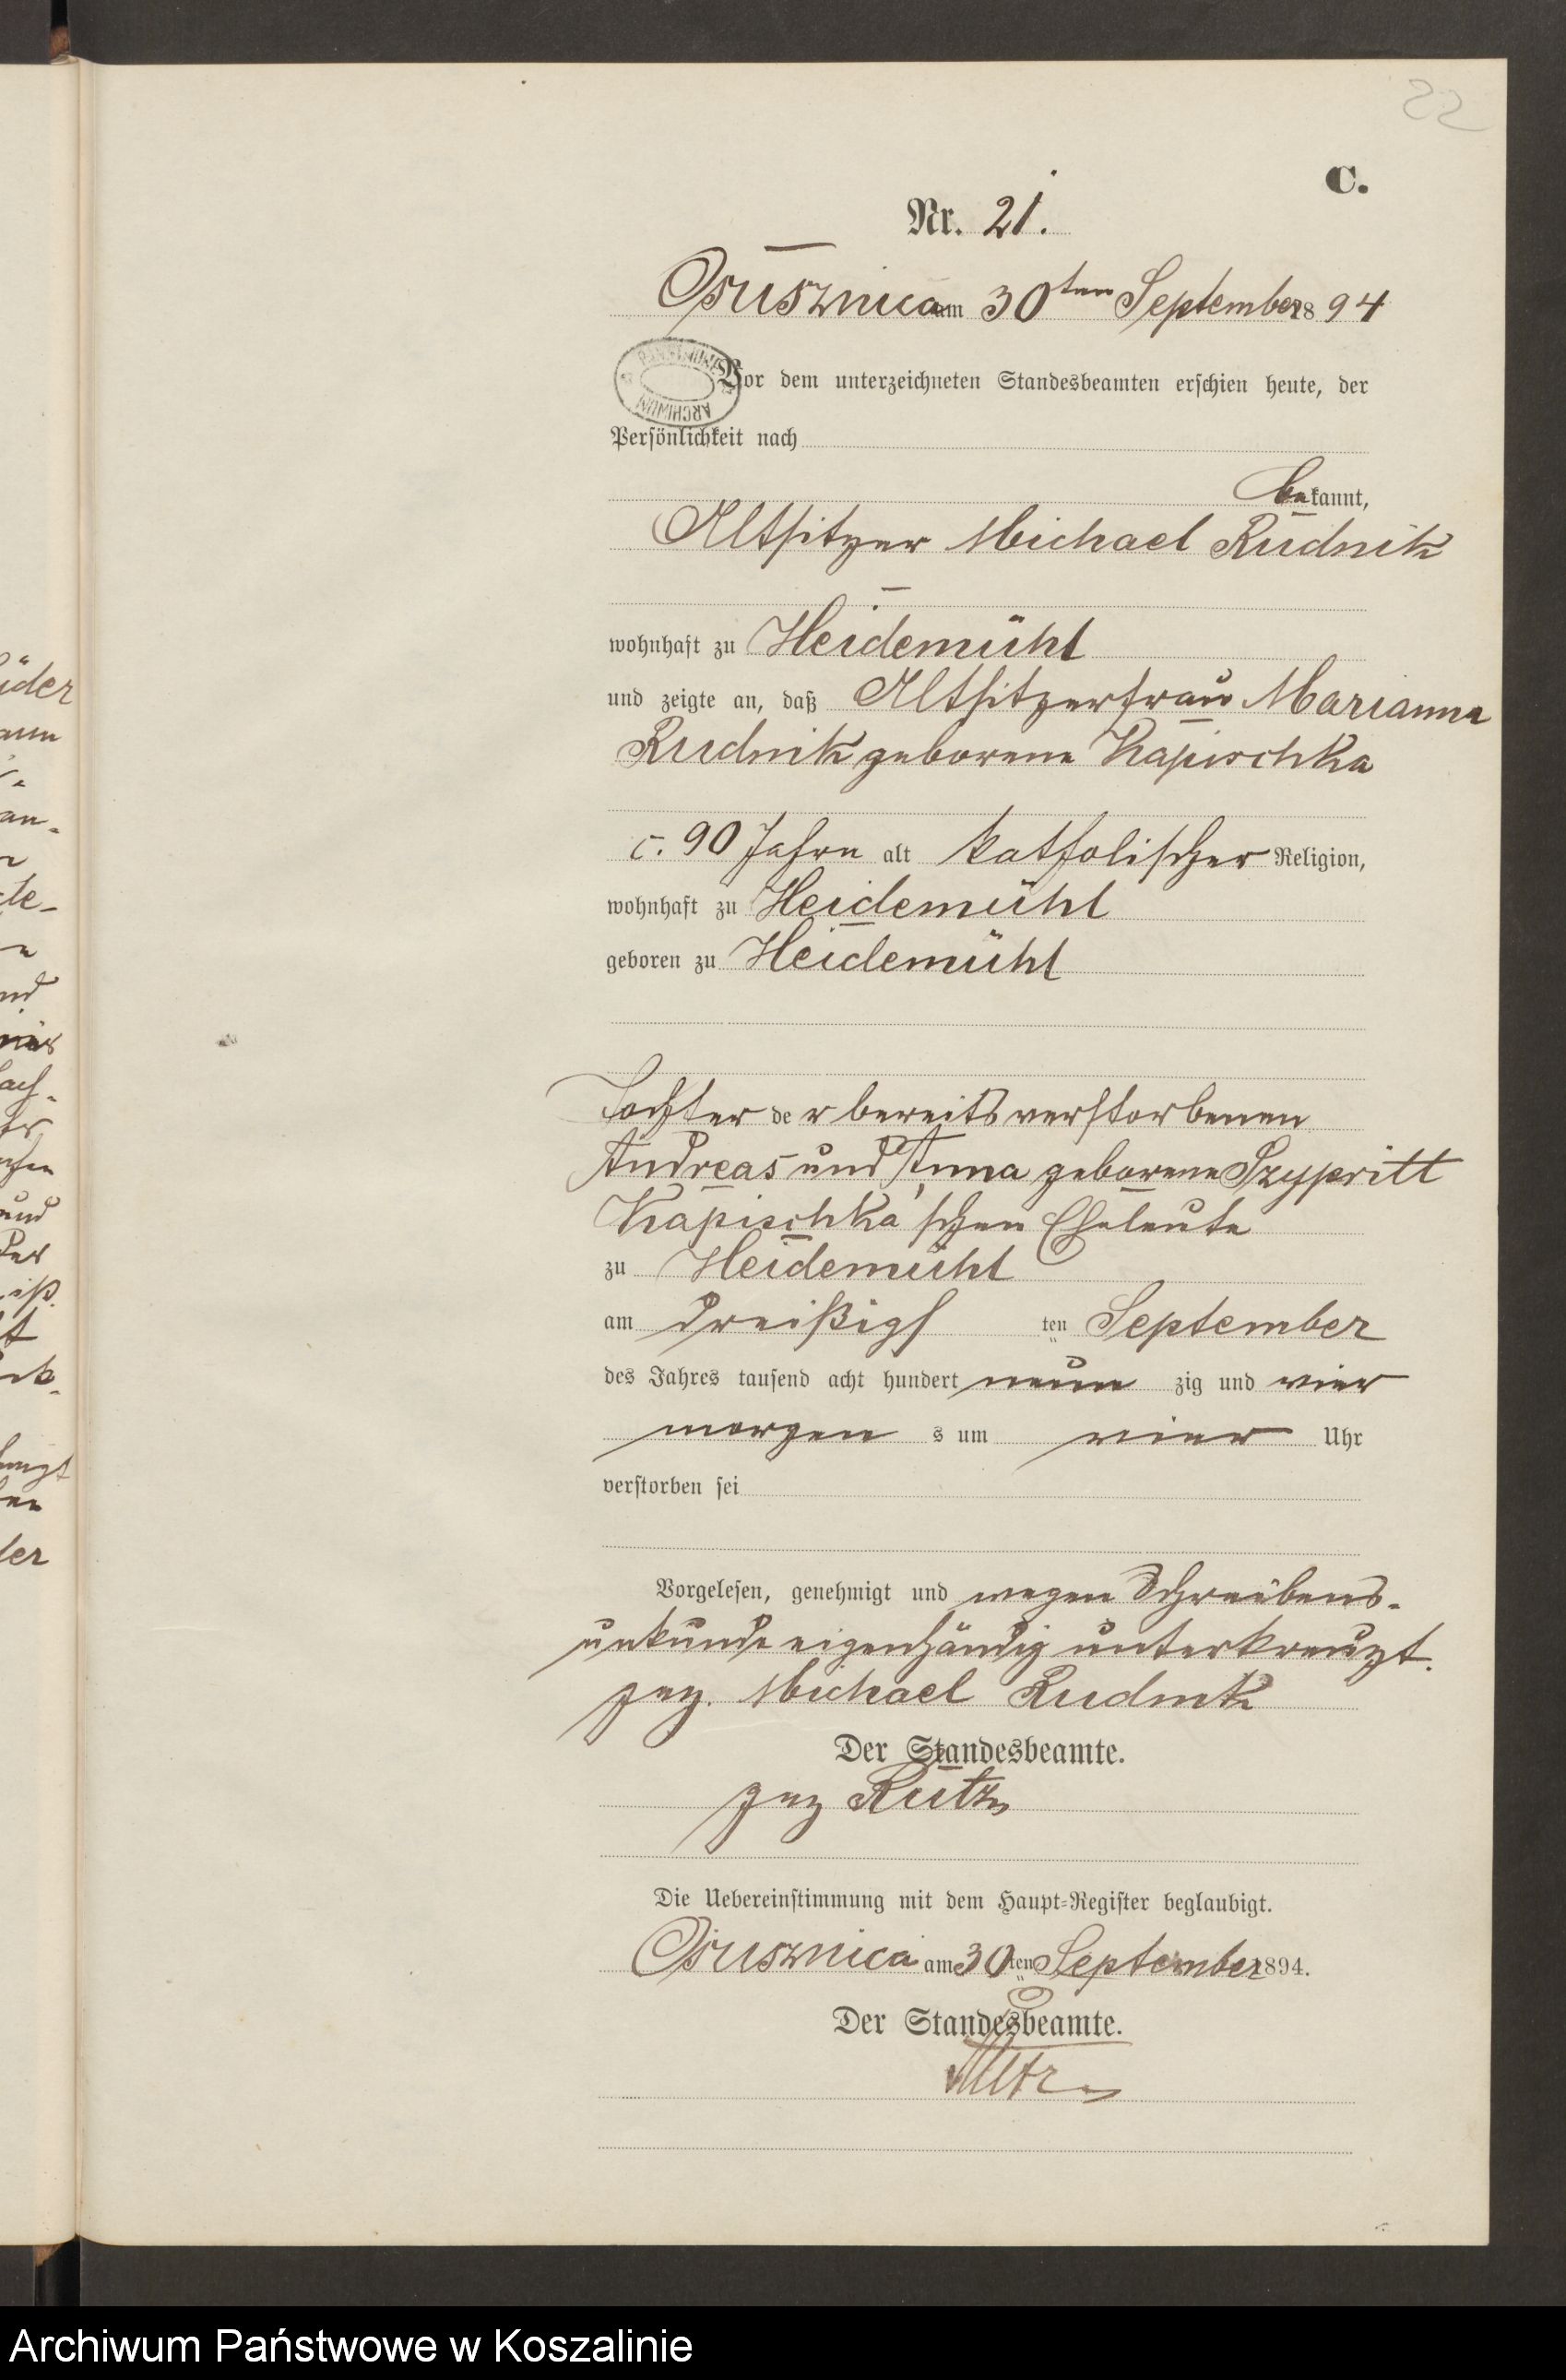 22
C.
Nr. 21.
Ossusznica am 30ten September 1894
Vor dem unterzeichneten Standesbeamten erschien heute, der
Persönlichkeit nach
bekannt,
Altsitzer Michael Rudnik
wohnhaft zu Heidemühl
und zeigte an, daß Altsitzerfrau Marianna
Rudnik geborene Kapischka
c. 90 Jahre alt katholischer Religion,
wohnhaft zu Heidemühl
geboren zu Heidemühl
Tochter der bereits verstorbenen
Andreas und Anna geborene Szypritt
Kapischka'schen Eheleute
zu Heidemühl
am dreißigsten September
des Jahres tausend acht hundert neunzig und vier
morgens um vier Uhr
verstorben sei
Vorgelesen, genehmigt und wegen Schreibens-
unkunde eigenhändig unterkreuzt.
gez. Michael Rudnik
Der Standesbeamte.
gez Rutz
Die Uebereinstimmung mit dem Haupt-Register beglaubigt.
Ossusznica am 30ten September 1894.
Der Standesbeamte.
Rutz
Archiwum Państwowe w Koszalinie